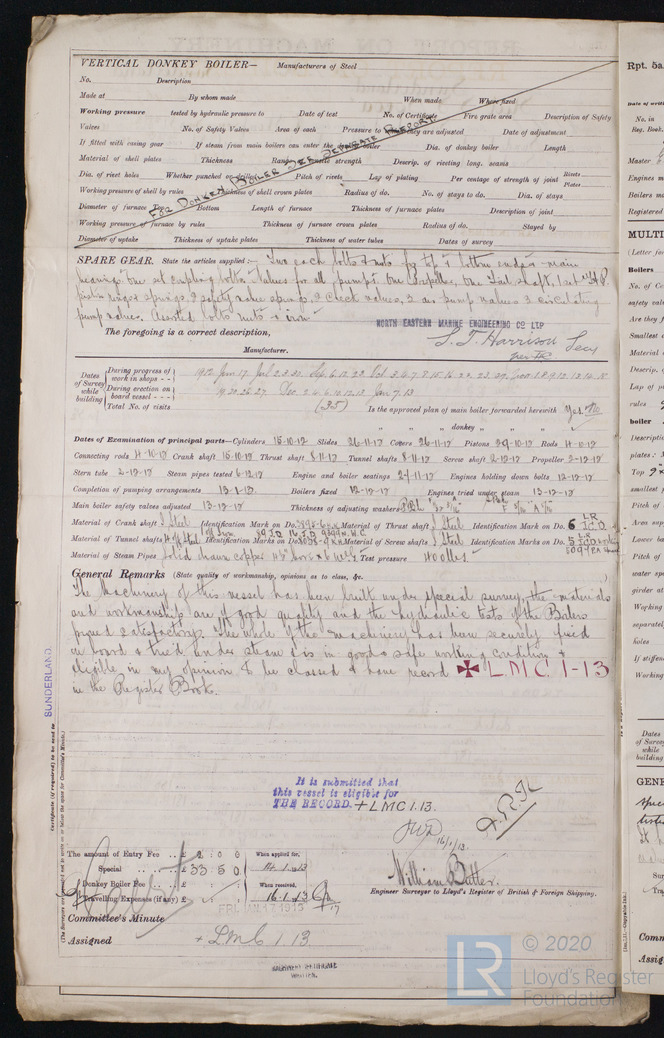 VERTICAL DONKEY BOILER— Manufacturers of Steel
No. Description
Made at By whom made When made Where fixed
Working pressure tested by hydraulic pressure to Date of test No. of Certificate Fire grate area Description of Safety
Valves No. of Safety Valves Area of each Pressure to which they are adjusted Date of adjustment
If fitted with casing gear If steam from main boilers can enter the donkey boiler Dia. of donkey boiler Length
Material of shell plates Thickness Range of tensile strength Descrip. of riveting long. seams
Dia. of rivet holes Whether punched or drilled Pitch of rivets Lap of plating Per centage of strength of joint Rivets Plates
Working pressure of shell by rules Thickness of shell crown plates Radius of do. No. of stays to do. Dia. of stays
Diameter of furnace Top Bottom Length of furnace Thickness of furnace plates Description of joint
Working pressure of furnace by rules Thickness of furnace crown plates Radius of do. Stayed by
Diameter of uptake Thickness of uptake plates Thickness of water tubes Dates of survey
FOR DONKEY BOILER SEE SEPARATE REPORT
SPARE GEAR. State the articles supplied:— Two each bolts & nuts for top & bottom ends & main
bearings. One set coupling bolts. Valves for all pumps. One Propeller, One Tail shaft, 1 set H.P.
piston rings & springs, 2 safety valve springs, 2 check valves, 2 air pump valves 3 circulating
pump valves. Assorted bolts nuts & iron.
NORTH EASTERN MARINE ENGINEERING CO LTD
The foregoing is a correct description,
S. T. Harrison Secy
Manufacturer.
Dates of Survey while building
During progress of work in shops - -
During erection on board vessel - - -
Total No. of visits (35)
Is the approved plan of main boiler forwarded herewith Yes
" " " donkey " " "
Dates of Examination of principal parts—Cylinders 15-10-12 Slides 26-11-12 Covers 26-11-12 Pistons 29-10-12 Rods 4-10-12
Connecting rods 4-10-12 Crank shaft 15-10-12 Thrust shaft 8-11-12 Tunnel shafts 8-11-12 Screw shaft 2-12-12 Propeller 2-12-12
Stern tube 2-12-12 Steam pipes tested 6-12-12 Engine and boiler seatings 27-11-12 Engines holding down bolts 12-12-12
Completion of pumping arrangements 13-1-13 Boilers fixed 12-12-12 Engines tried under steam 13-12-12
Main boiler safety valves adjusted 13-12-12 Thickness of adjusting washers
Material of Crank shaft I Steel Identification Mark on Do. Material of Thrust shaft I Steel Identification Mark on Do.
Material of Tunnel shafts Identification Marks on Do. Material of Screw shafts I Steel Identification Marks on Do.
Material of Steam Pipes Solid drawn copper Test pressure 400 lbs
General Remarks (State quality of workmanship, opinions as to class, &c.
The Machinery of this vessel has been built under special survey, the materials
and workmanship are of good quality and the hydraulic tests of the Boilers
proved satisfactory. The whole of the machinery has been securely fixed
on board & tried under steam & is in good & safe working condition &
eligible in my opinion to be classed & have record ✠ L.M.C 1-13
in the Register Book.
SUNDERLAND.
Certificate (if required) to be sent to
(The Surveyors are requested not to write on or below the space for Committee's Minute.)
It is submitted that
this vessel is eligible for
THE RECORD. + LMC 1.13.
16/1/13.
The amount of Entry Fee . . £ 2 : 0 : 0 When applied for,
Special . . . . £ 33 : 5 : 0 14.1.13
Donkey Boiler Fee . . . £ : : When received,
Travelling Expenses (if any) £ : : 16.1.13
William Butler.
Engineer Surveyor to Lloyd's Register of British & Foreign Shipping.
Committee's Minute FRI. JAN. 17. 1913
Assigned + LMC 1.13.
MACHINERY CERTIFICATE
WRITTEN.
Rpt. 5a
No. in
Reg. Book
Master
Engines m
Boilers m
Registered
MULTI
(Letter fo
Boilers
LR
© 2020
Lloyd's Register
Foundation